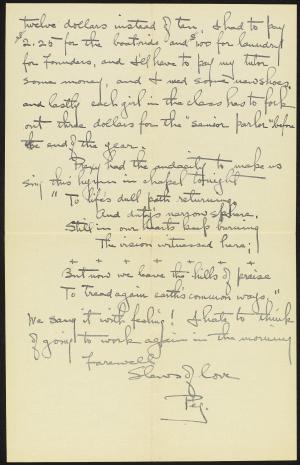 twelve dollars instead of ten, I had to pay
$2.25 for the boatride and $.00 for laundry
for Founders, and I'll have to pay my tutor
some money, and I need some new shoes,
and lastly each girl in the class has to fork
out three dollars for the "senior parlor" before
the end of the year.
Prexy had the audacity to make us
sing this hymn in chapel tonight
"To life's dull path returning,
And duty's narrow sphere,
Still in our hearts keep burning
The vision witnessed here;
+ + + + + +
But now we leave the hills of praise
To tread again earth's common ways."
We sang it with feeling! I hate to think
of going to work again in the morning
Farewell
Slews of love
Peg.